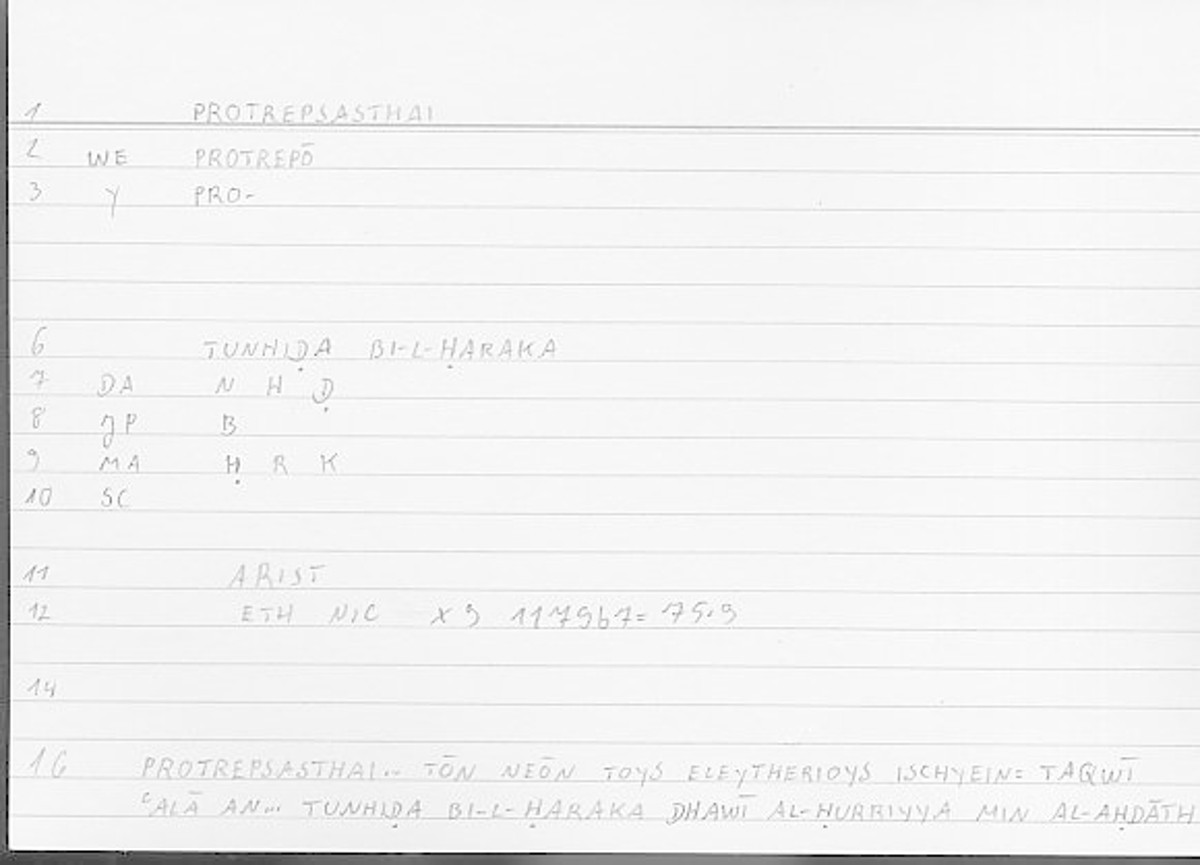 1 PROTREPSASTHAI
2 WE PROTREPŌ
3 Y PRO-
6 TUNHIḌA BI-L-ḤARAKA
7 DA N H Ḍ
8 JP B
9 MA Ḥ R K
10 SC
11 ARIST
12 ETH NIC X 9 1179b7= 75.9
14
16 PROTREPSASTHAI... TŌN NEŌN TOYS ELEYTHERIOYS ISCHYEIN= TAQWĪ
ʿALĀ AN... TUNHIḌA BI-L-ḤARAKA DHAWĪ AL-ḤURRIYYA MIN AL-AḤDĀTH